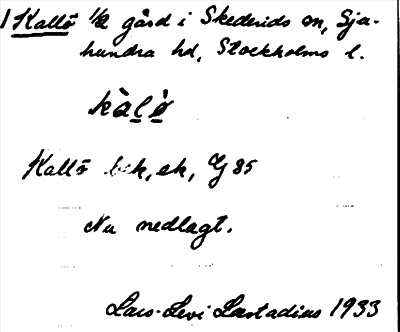 1 Kallö 1/2 gård i Skederids sn, Sju-
hundra hd, Stockholms l.
kàlö̀
Kallö bek, ek, G 85
Nu nedlagt.
Lars-Levi Læstadius 1933